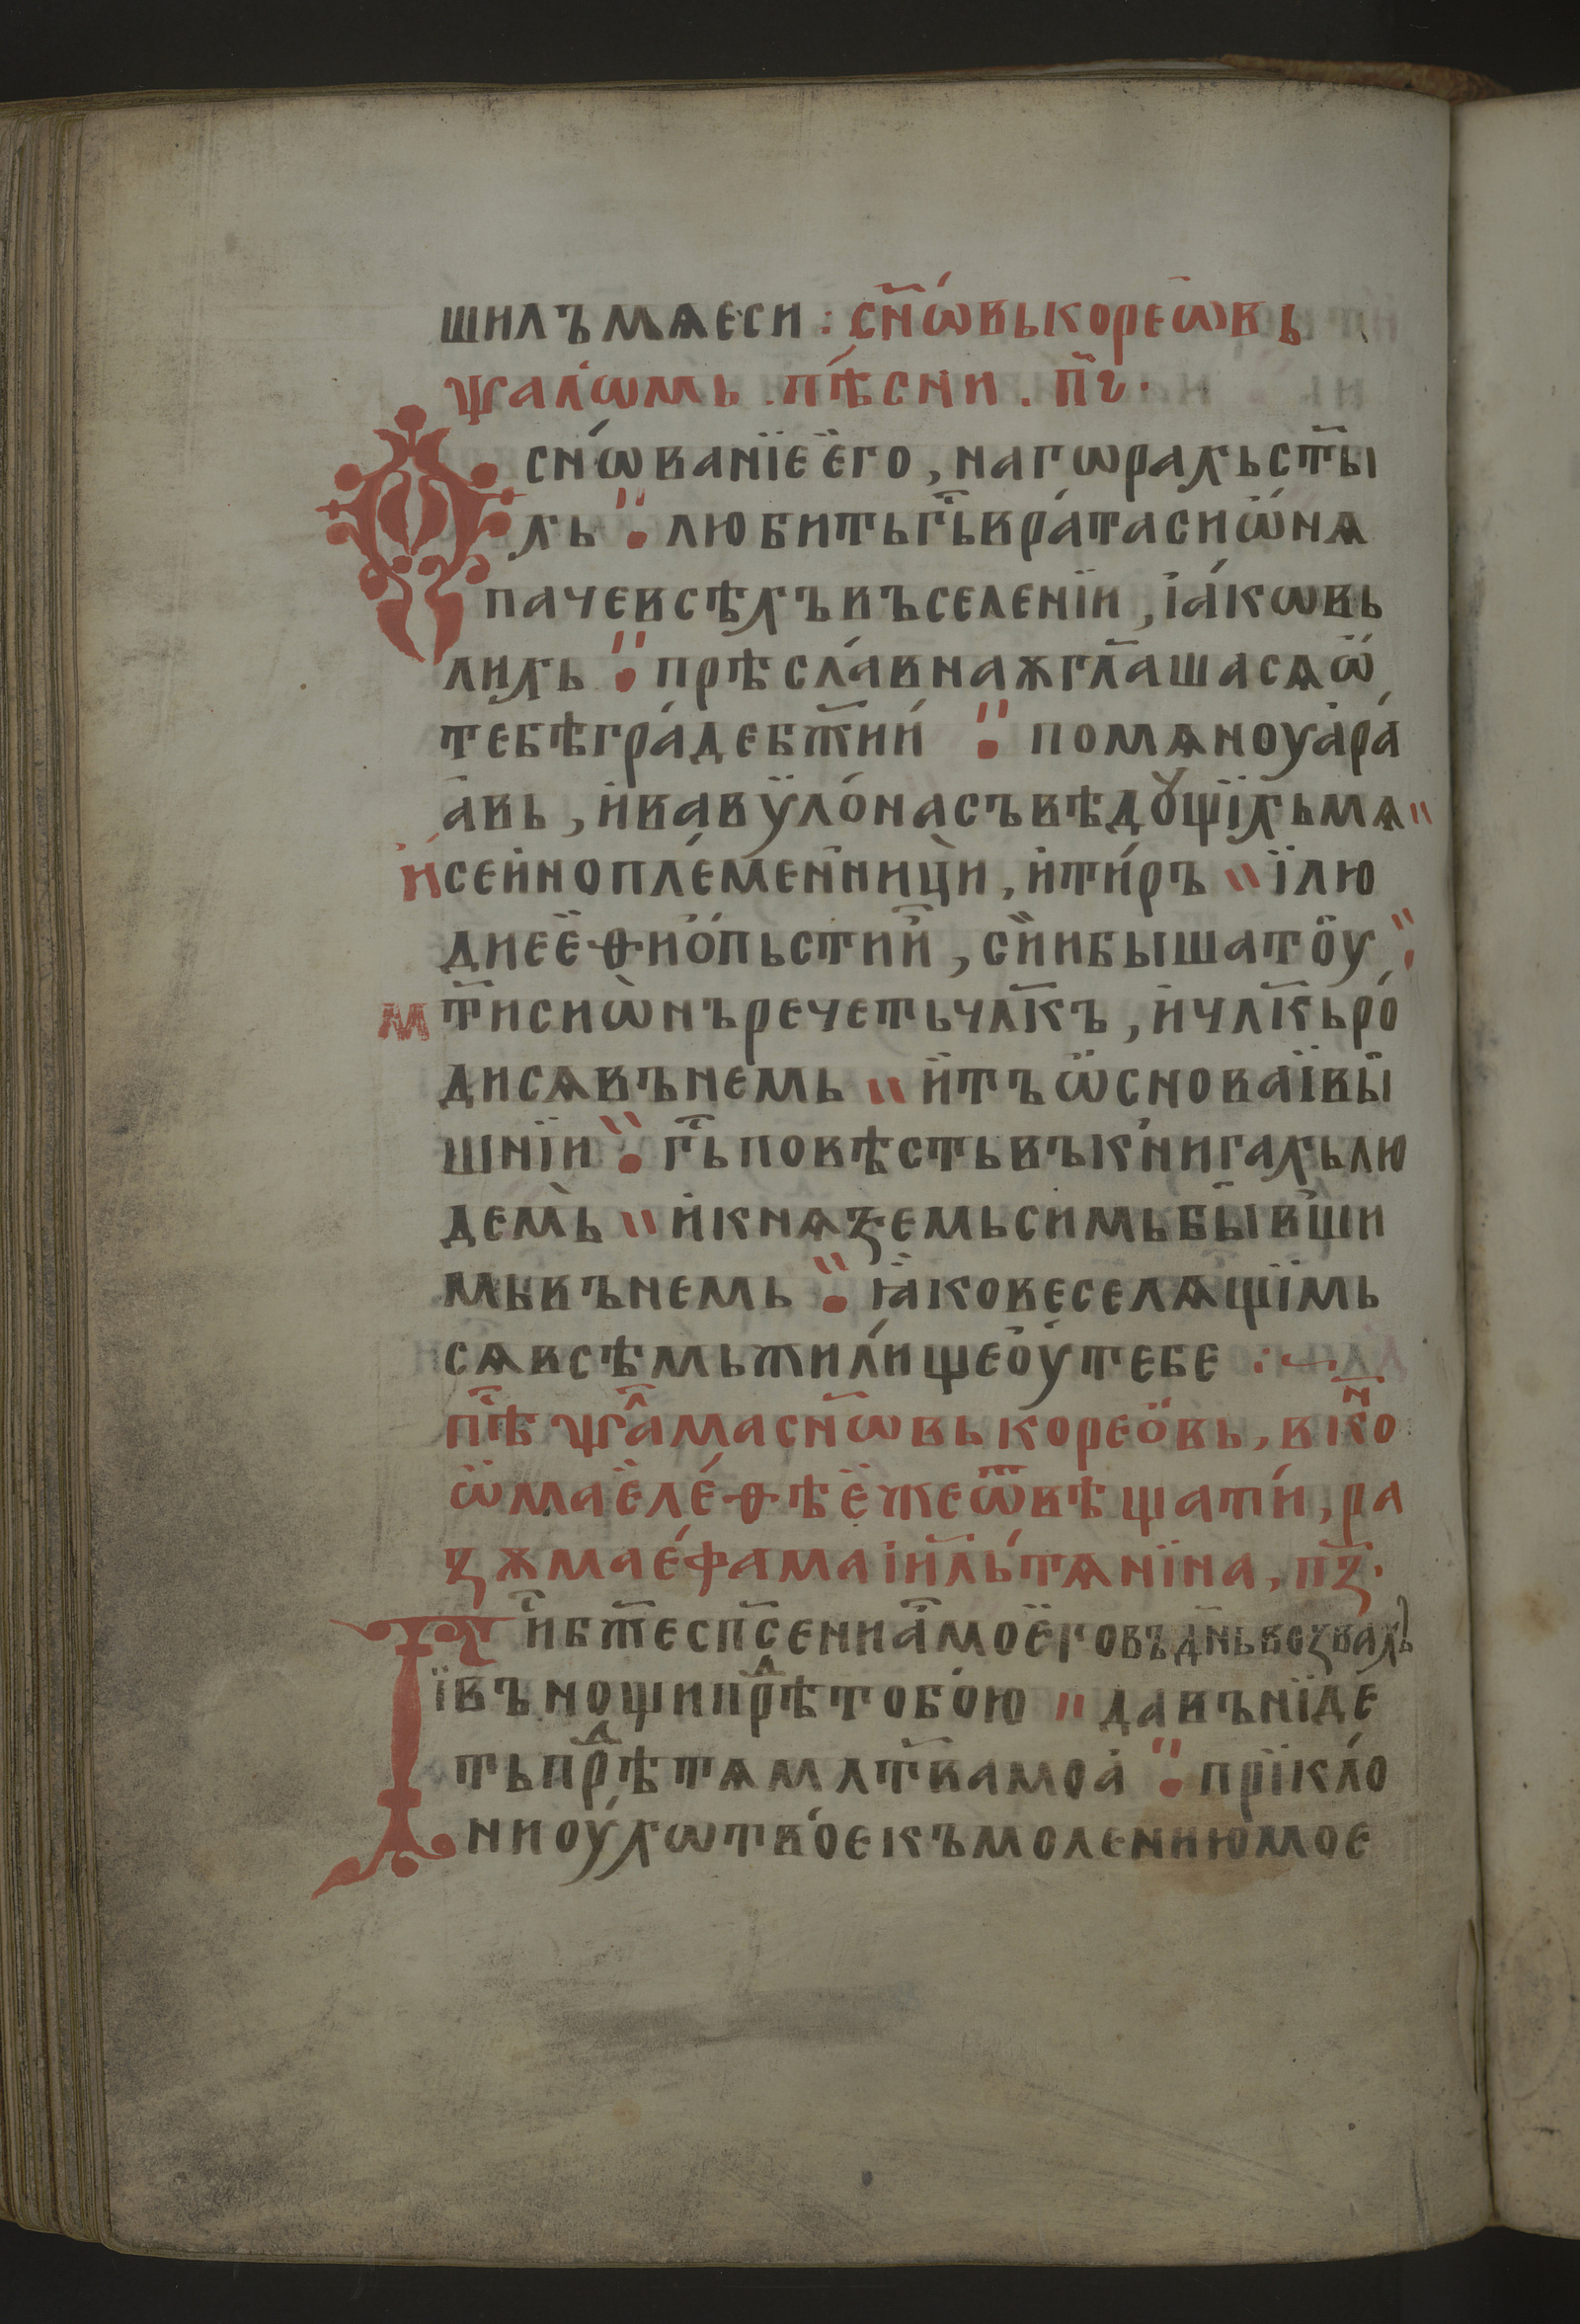 шилъмѧеси : сн҃ѡ́вькореѡвь
ѱалѡмь . пѣ́сни . п҃ꙅ ·
Ѻсно́ванїеѐго , нагѡрахьст҃ы
хь : любитьг҃ьвра́тасиѡ́нѧ
пачевсѣхъвъселенїи , іа́кѡвь
лихь : прѣсла́внаѫгл҃ашасѧѡ҅
тебѣгра́дебж҃ии : помѧноуа҅ра́
а҅вь , и҅вавѵло́насъвѣдꙋщїихьмѧ "
и҅сеи҅нопле́менници , и҅ти́ръ " ї҅лю
диеѐѳио́пьстии , сїибышатоу :
мт҃исиѡ̀нъречетьчл҃къ , и҅чл҃кьро́
дисѧвънемь " и҅тъѡ҅сноваї҅вы
шнїи : г҃ьповѣстьвъкнигахьлю
демь " и҅кнѧземьсимьбы́вши
мьвънемь : ꙗ҅ковеселѧщїмь
сѧвсѣмьжили́щеоу҅тебе :~
пѣ҃ ѱл҃амасн҃ѡвькорео́вь , вкн҃о
ѡ҅маѐле́ѳѣѐжеѿвѣщати́ , ра
зѫмае҅фамаіи҃льтѧнїна , п҃з ·
Ги҃бж҃есп҃сениа҅моѐговъдн҃ьвозвахъ
ї҅въношипрⷣѣтобо́ю " давънїде́
тьпрⷣѣтѧмлт҃вамоа҅ : прїкло́
ниоу҅хѡтвоекъмолениюмое